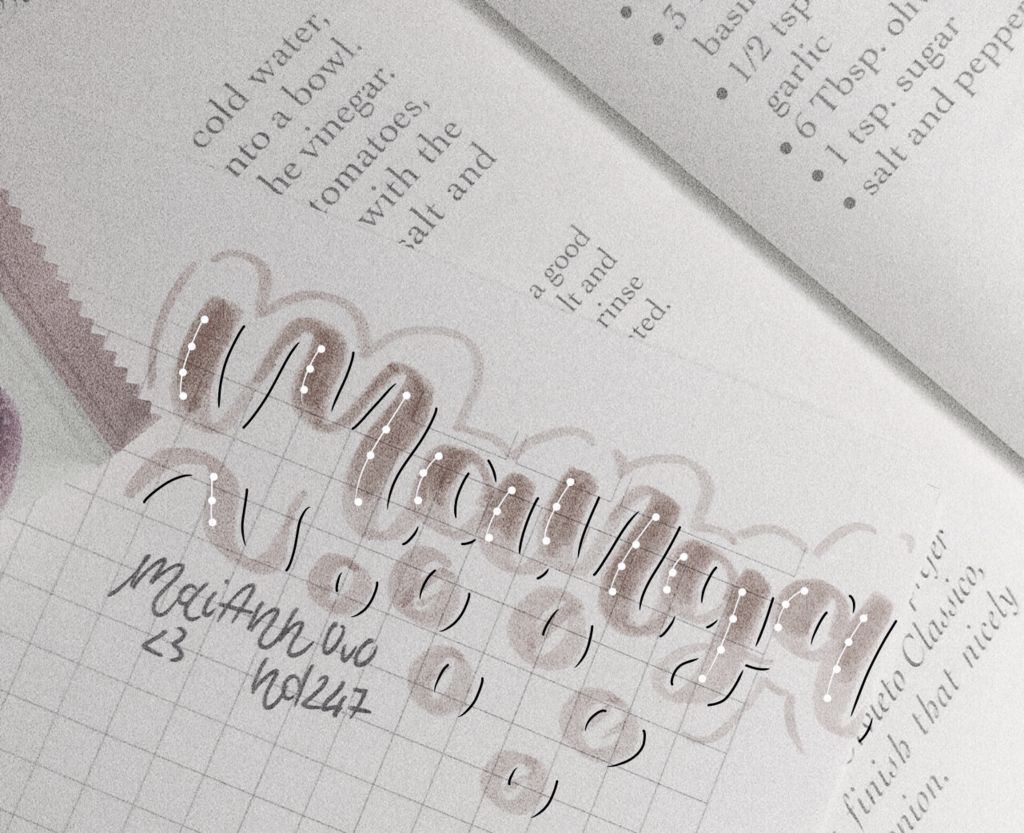 cold water,
nto a bowl.
he vinegar.
tomatoes,
with the
salt and
a good
lt and
rinse
ted.
• 3
basi
• 1/2 tsp
garlic
• 6 Tbsp. oliv
• 1 tsp. sugar
• salt and pepper
MaiAnh OvO
<3
hd1247
yer
neto Classico,
finish that nicely
nion.